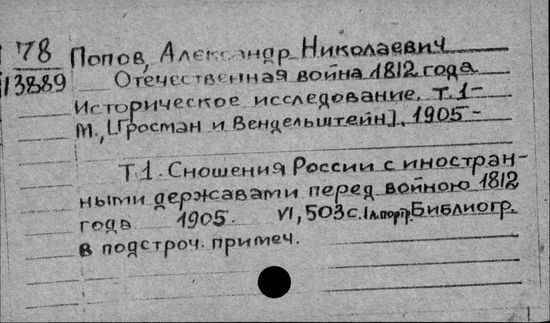 78
13889
Попов, Александр Николаевич
Отечественная война 1812 года
Историческое исследование. Т. 1-
М., [Гросман и Вендельштейн], 1905-
Т. 1. Сношения России с иностран-
ными державами перед войною 1812
года 1905. VI, 503 с. 1 л. портр. Библиогр.
в подстроч. примеч.